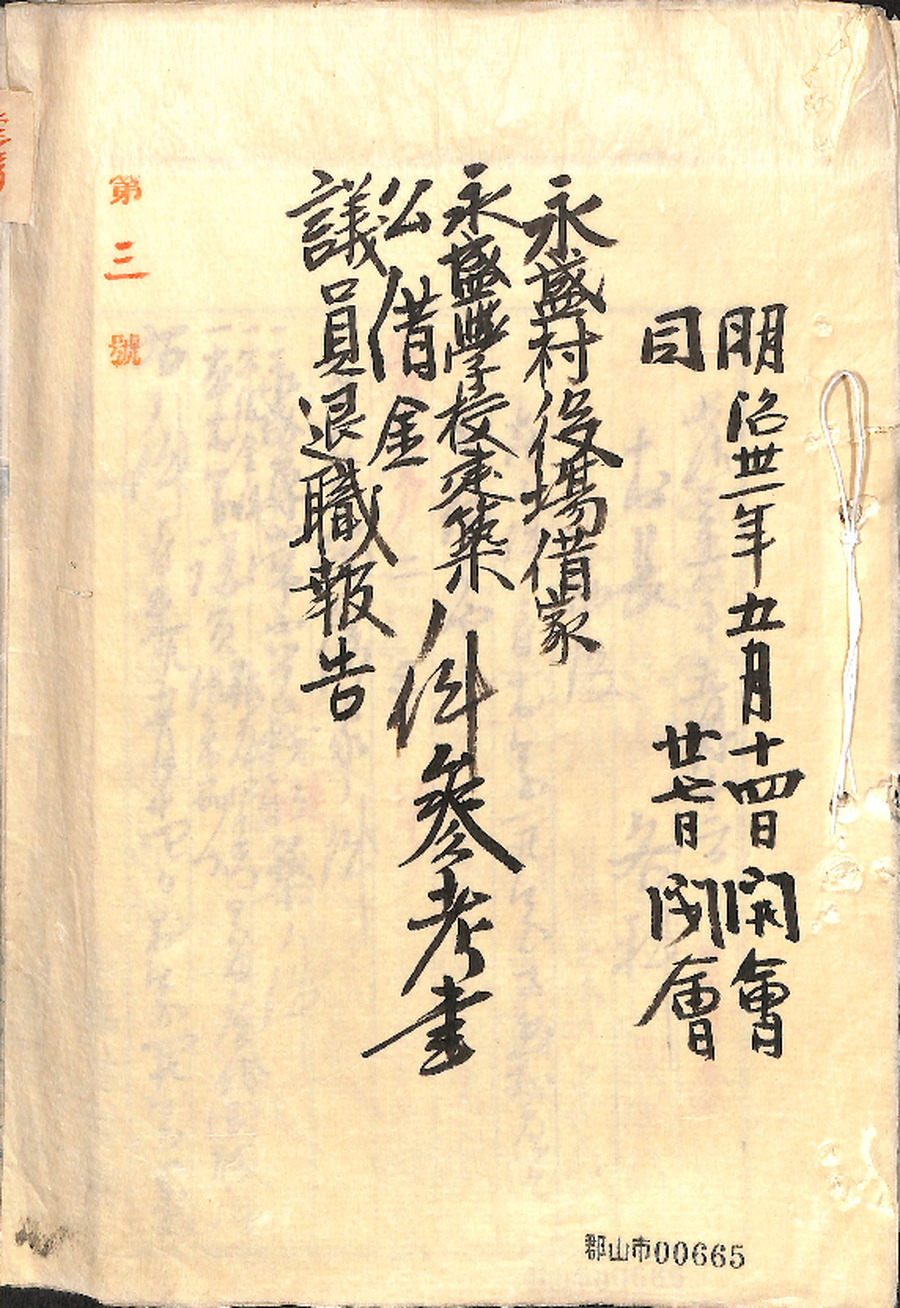 明治卅一年五月十四日開會
同廿七日閉會
永盛村役場借家
永盛學校建築ノ件参考書
公借金
議員退職報告
第三號
郡山市00665